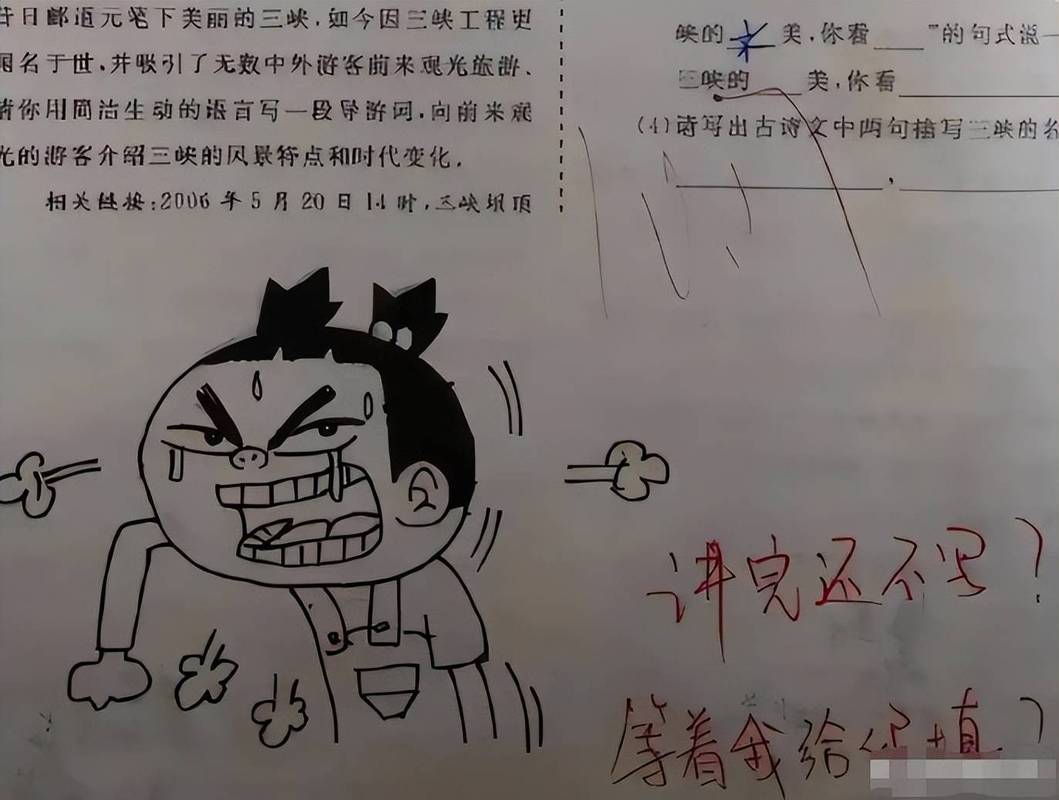 昔日郦道元笔下美丽的三峡，如今因三峡工程更
闻名于世，并吸引了无数中外游客前来观光旅游、
请你用简洁生动的语言写一段导游词，向前来观
光的游客介绍三峡的风景特点和时代变化．
相关链接：2006年5月20日14时，三峡坝顶
峡的 美，你看____”的句式说一
三峡的____美，你看
(4)请写出古诗文中两句描写三峡的名
讲完还不写？
等着我给你填？